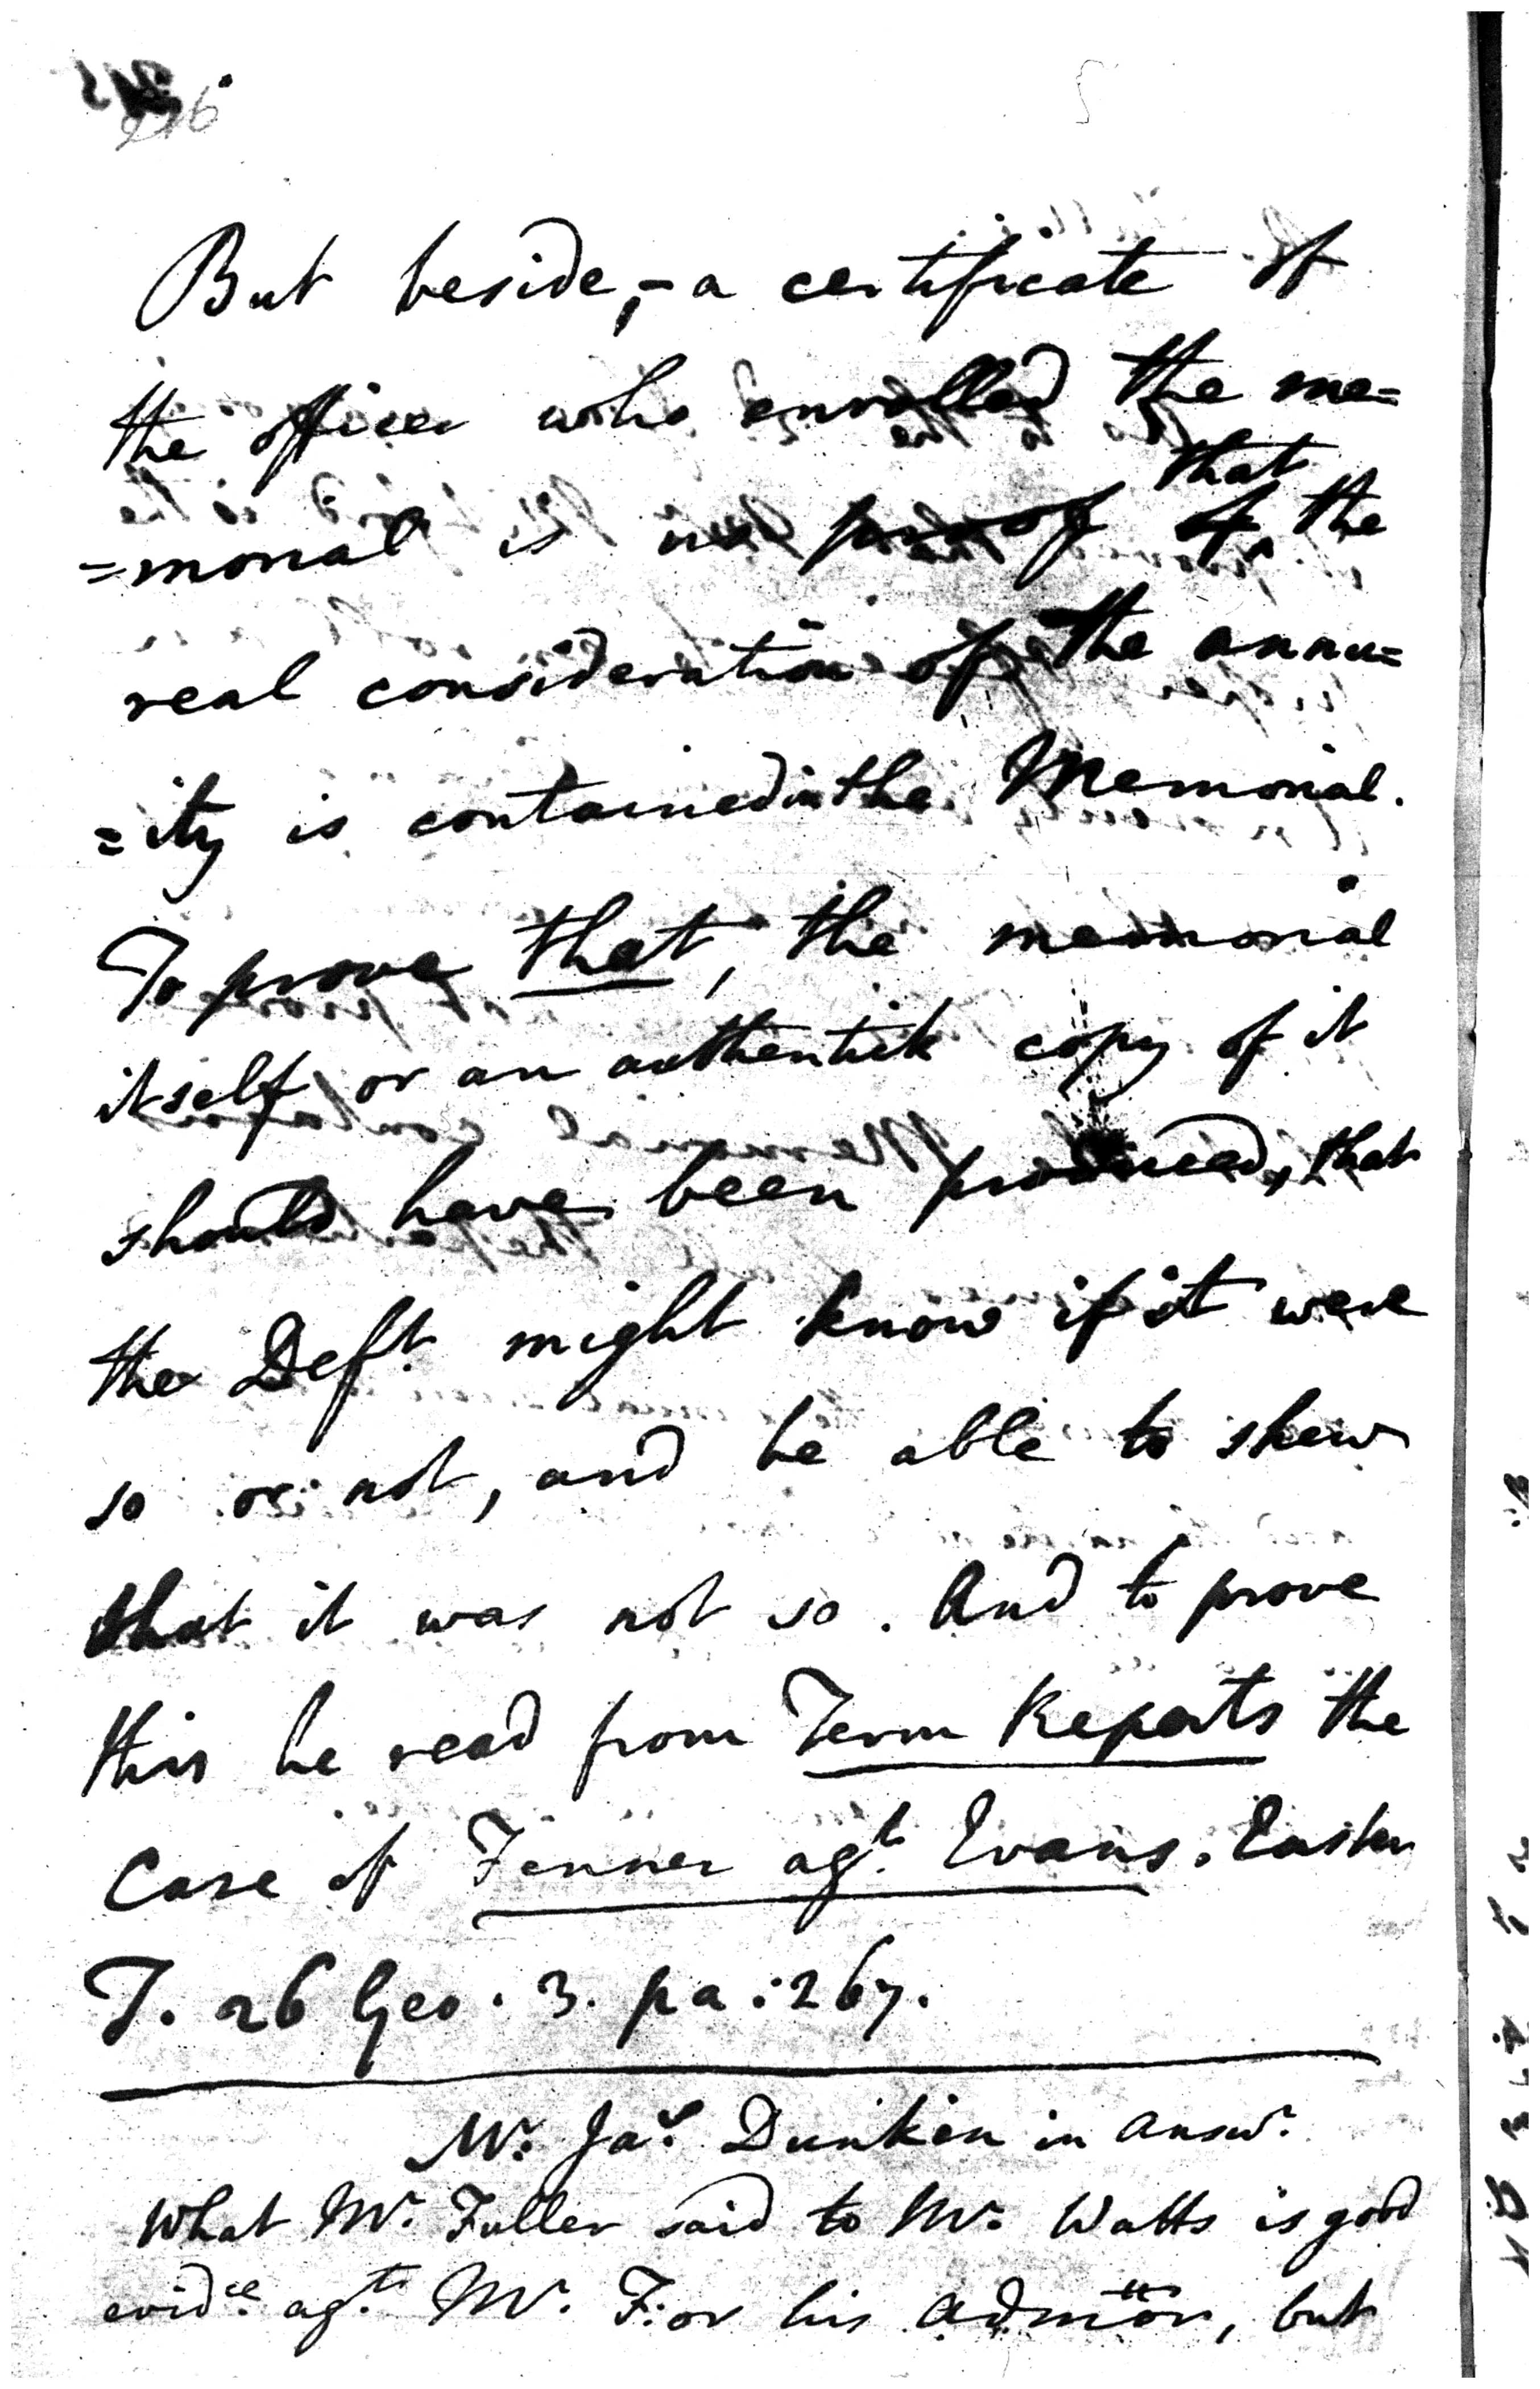 216
But beside, - a certificate of
the officer who enrolled the me=
=morial is no proof that the
real consideration of the annu=
=ity is contained in the Memorial.
To prove that, the memorial
itself or an authentik copy of it
should have been produced, that
the Deft. might know if it were
so or not, and be able to shew
that it was not so. And to prove
this he read from Term Reports the
Case of Fenner agt. Evans. Easter
T. 26 Geo. 3. pa: 267.
Mr. Jas. Dunkin in answr.
What Mr. Fuller said to Mr. Watts is good
evidce. agt. Mr. F. or his admor, but